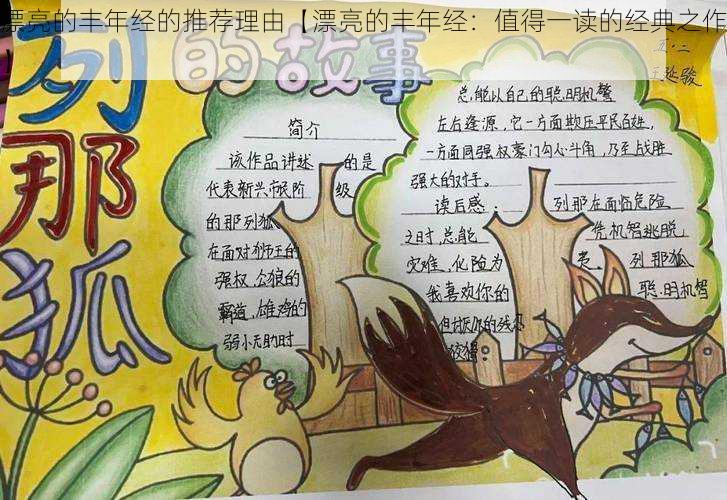 漂亮的丰年经的推荐理由【漂亮的丰年经：值得一读的经典之作
列那狐
的故事
五.二
王延骏
简介
该作品讲述 的是
代表新兴市民阶 级
的那列狐
在面对狮王的
强权,公狼的
霸道,雄鸡的
弱小无助时
总能以自己的聪明机警
左右逢源,它一方面欺压平民百姓,
一方面同强权豪门勾心斗角,乃至战胜
强大的对手。
读后感: 列那在面临危险
之时,总能 凭机智逃脱
灾难,化险为 夷。 列那狐
我喜欢你的 聪明机智
但讨厌你的残忍
狡猾!